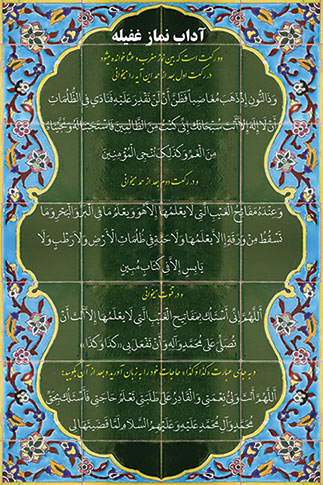 آداب نماز غفیله
دو رکعت است که بین نماز مغرب و عشا خوانده میشود
در رکعت اول بعد از حمد این آیه را میخوانی
وَذَا النُّونِ إِذْ ذَهَبَ مُغَاضِبًا فَظَنَّ أَنْ لَنْ نَقْدِرَ عَلَيْهِ فَنَادَى فِي الظُّلُمَاتِ
أَنْ لَا إِلَهَ إِلَّا أَنْتَ سُبْحَانَكَ إِنِّي كُنْتُ مِنَ الظَّالِمِينَ فَاسْتَجَبْنَا لَهُ وَنَجَّيْنَاهُ
مِنَ الْغَمِّ وَكَذَلِكَ نُنْجِي الْمُؤْمِنِينَ
و در رکعت دوم بعد از حمد میخوانی
وَعِنْدَهُ مَفَاتِحُ الْغَيْبِ لَا يَعْلَمُهَا إِلَّا هُوَ وَيَعْلَمُ مَا فِي الْبَرِّ وَالْبَحْرِ وَمَا
تَسْقُطُ مِنْ وَرَقَةٍ إِلَّا يَعْلَمُهَا وَلَا حَبَّةٍ فِي ظُلُمَاتِ الْأَرْضِ وَلَا رَطْبٍ وَلَا
يَابِسٍ إِلَّا فِي كِتَابٍ مُبِينٍ
و در قنوت میخوانی
اَللَّهُمَّ إِنِّي أَسْئَلُكَ بِمَفَاتِيحِ الْغَيْبِ الَّتِي لَا يَعْلَمُهَا إِلَّا أَنْتَ أَنْ
تُصَلِّيَ عَلَى مُحَمَّدٍ وَآلِهِ وَأَنْ تَفْعَلَ بِي «كَذَا وَكَذَا»
و به جای عبارت «کذا و کذا» حاجات خود را به زبان آورید و بعد از آن بگویید:
اَللَّهُمَّ أَنْتَ وَلِيُّ نِعْمَتِي وَالْقَادِرُ عَلَى طَلِبَتِي تَعْلَمُ حَاجَتِي فَأَسْئَلُكَ بِحَقِّ
مُحَمَّدٍ وَآلِ مُحَمَّدٍ عَلَيْهِ وَعَلَيْهِمُ السَّلَامُ لَمَّا قَضَيْتَهَا لِي